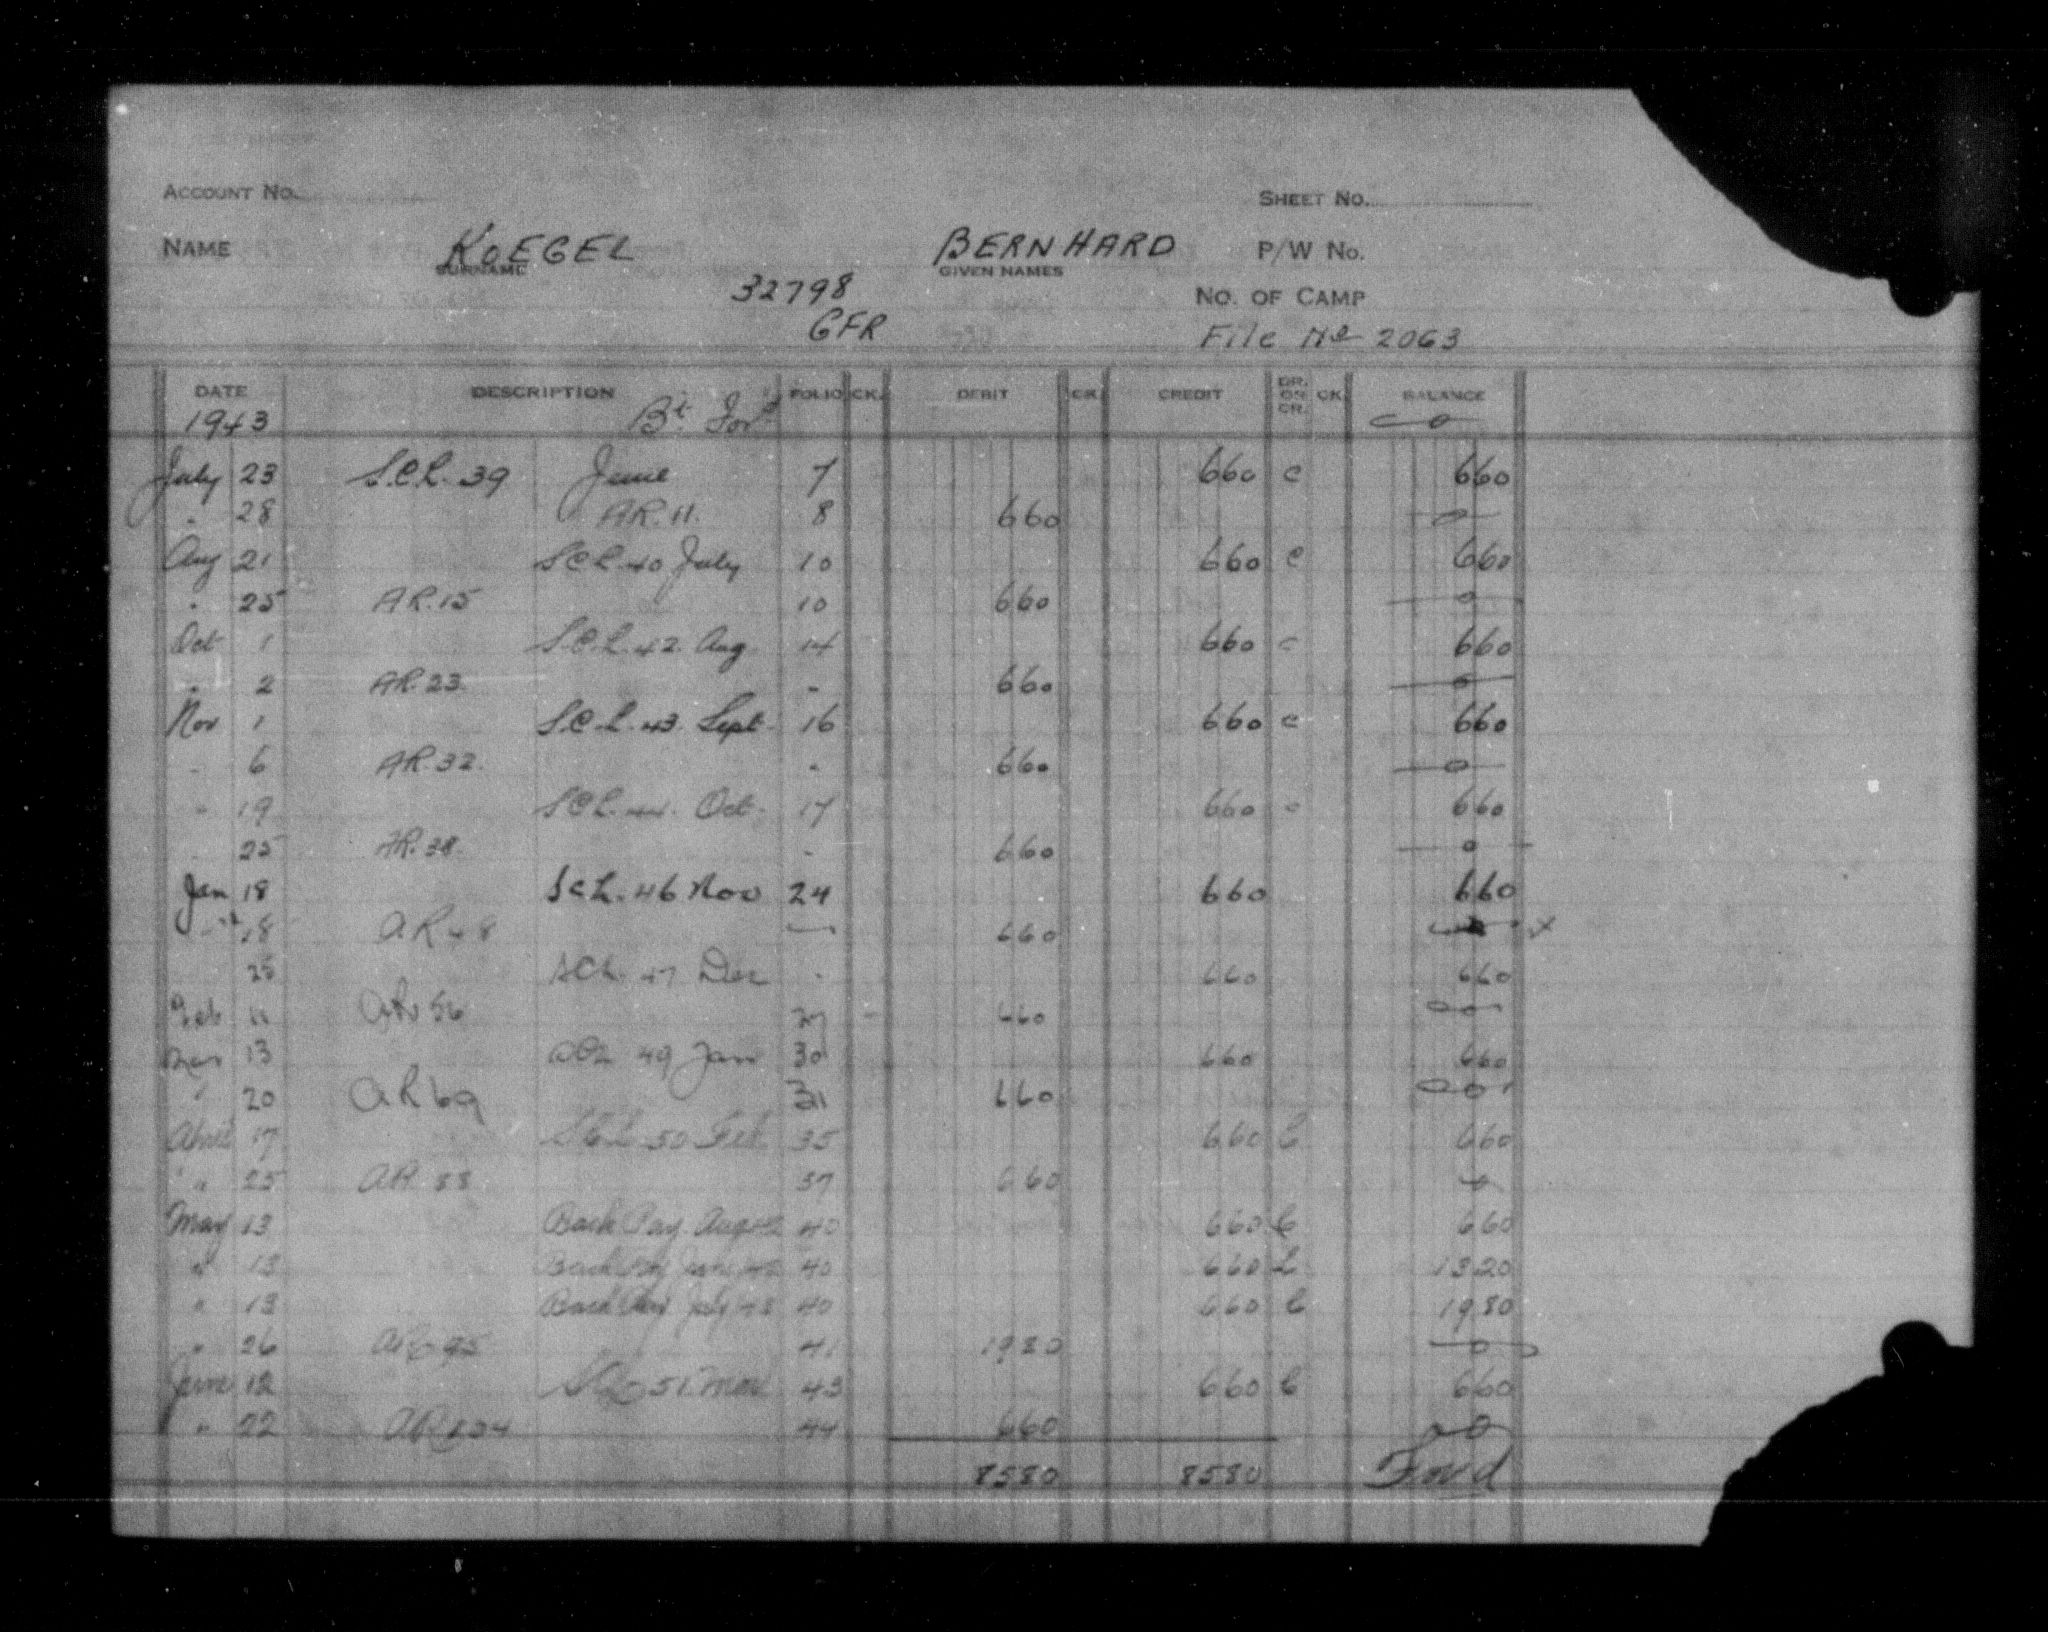 ACCOUNT NO. SHEET NO.
NAME KOEGEL BERNHARD P/W NO.
SURNAME GIVEN NAMES
32798 NO. OF CAMP
GFR File No 2063
DATE DESCRIPTION FOLIO CK. DEBIT CK. CREDIT DR. OR CR. CK. BALANCE
1943 Bt Ford 0
July 23 S.C.L. 39 June 7 660 c 660
" 28 A.R. 11. 8 660 0
Aug 21 S.C.L. 40 July 10 660 c 660
" 25 A.R. 15 10 660 0
Oct 1 S.C.L. 42. Aug 14 660 c 660
" 2 A.R. 23. - 660 0
Nov 1 S.C.L. 43. Sept. 16 660 c 660
" 6 A.R. 32. - 660 0
" 19 S.C.L. 44. Oct. 17 660 c 660
" 25 A.R. 38. - 660 0
Jan 18 S.C.L. 46 Nov 24 660 660
" 18 A.R 48 — 660 x
25 S.C.L. 47 Dec - 660 660
Feb 11 A.R. 56 27 - 660 0
Mar 13 49 Jan 30 660 660
" 20 A.R 69 31 660 0
April 17 S.C.L. 50 Feb 35 660 C 660
" 25 A.R. 88 37 660 0
May 13 Back Pay. Aug 42 40 660 C 660
" 13 Back Pay 40 660 C 1320
" 13 Back Pay July 40 660 C 1980
" 26 A.R. 95 41 1980 0
June 12 S.C.L. 51. Mar 43 660 C 660
" 22 A.R. 104 44 660 0
8580 8580 Forwd